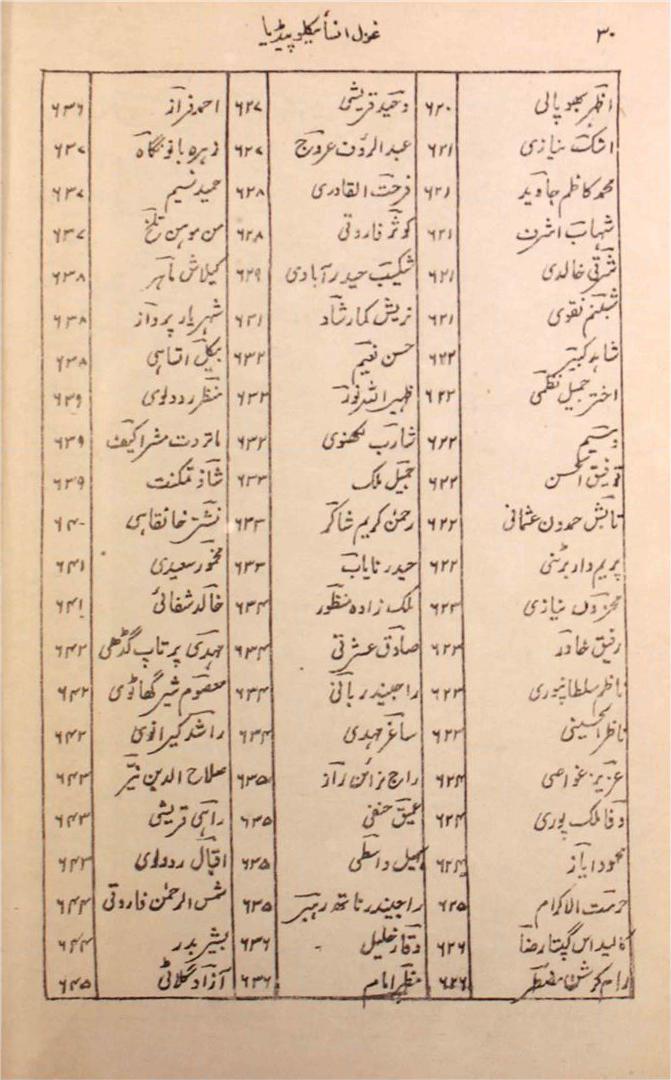 ۳۰ غزل انسائیکلوپیڈیا
اظہر بھوپالی ۶۲۰ وحید قریشی ۶۲۷ احمد فراز ۶۳۶
اشک نیازی ۶۲۱ عبدالرؤف عروج ۶۲۷ زہرہ بانو نگاہ ۶۳۷
محمد کاظم جاوید ۶۲۱ فرحت القادری ۶۲۸ حمید نسیم ۶۳۷
شہاب اشرف ۶۲۱ کوثر فاروقی ۶۲۸ من موہن تلخ ۶۳۷
شرقی خالدی ۶۲۱ شکیب حیدرآبادی ۶۲۹ کیلاش ماہر ۶۳۸
شبنم نقوی ۶۲۱ نریش کمار شاد ۶۳۱ شہریار پرواز ۶۳۸
شاہد کبیر ۶۲۲ حسن نعیم ۶۳۲ بیکل اتساہی ۶۳۸
اختر جمیل نظمی ۶۲۲ ظہیر اشہد نور ۶۳۲ منظر ردولوی ۶۳۹
وسیم ۶۲۲ شارب لکھنوی ۶۳۲ ماتردت مشرا کیف ۶۳۹
توفیق الحسن ۶۲۲ جمیل ملک ۶۳۳ شاذ تمکنت ۶۳۹
تابش حمدون عثمانی ۶۲۲ رحمٰن کریم شاکر ۶۳۳ نشتر خانقاہی ۶۴۰
پریم وار برٹنی ۶۲۲ حیدر نایاب ۶۳۳ مخمور سعیدی ۶۴۱
محزوں نیازی ۶۲۳ ملک زادہ منظور ۶۳۴ خالد شفائی ۶۴۱
رفیق خاور ۶۲۳ صادق عشرتی ۶۳۴ مہدی پرتاپ گڈھی ۶۴۲
ناظم سلطانپوری ۶۲۳ راجیندر بانی ۶۳۴ معصوم شیر گھاٹوی ۶۴۲
ناظر الحسینی ۶۲۳ ساغر مہدی ۶۳۴ راشد کیرانوی ۶۴۲
عزیز غواصی ۶۲۴ راج نرائن راز ۶۳۵ صلاح الدین نیر ۶۴۳
وفا ملک پوری ۶۲۴ عمیق حنفی ۶۳۵ راہی قریشی ۶۴۳
محمود ایاز ۶۲۴ سہیل واسطی ۶۳۵ اقبال ردولوی ۶۴۳
حرمت الاکرام ۶۲۵ راجیندر ناتھ رہبر ۶۳۵ شمس الرحمٰن فاروقی ۶۴۴
کالیداس گپتا رضا ۶۲۶ وقار خلیل ۶۳۶ بشیر بدر ۶۴۴
رام کرشن مضطر ۶۲۶ مظہر امام ۶۳۶ آزاد گلاٹی ۶۴۵